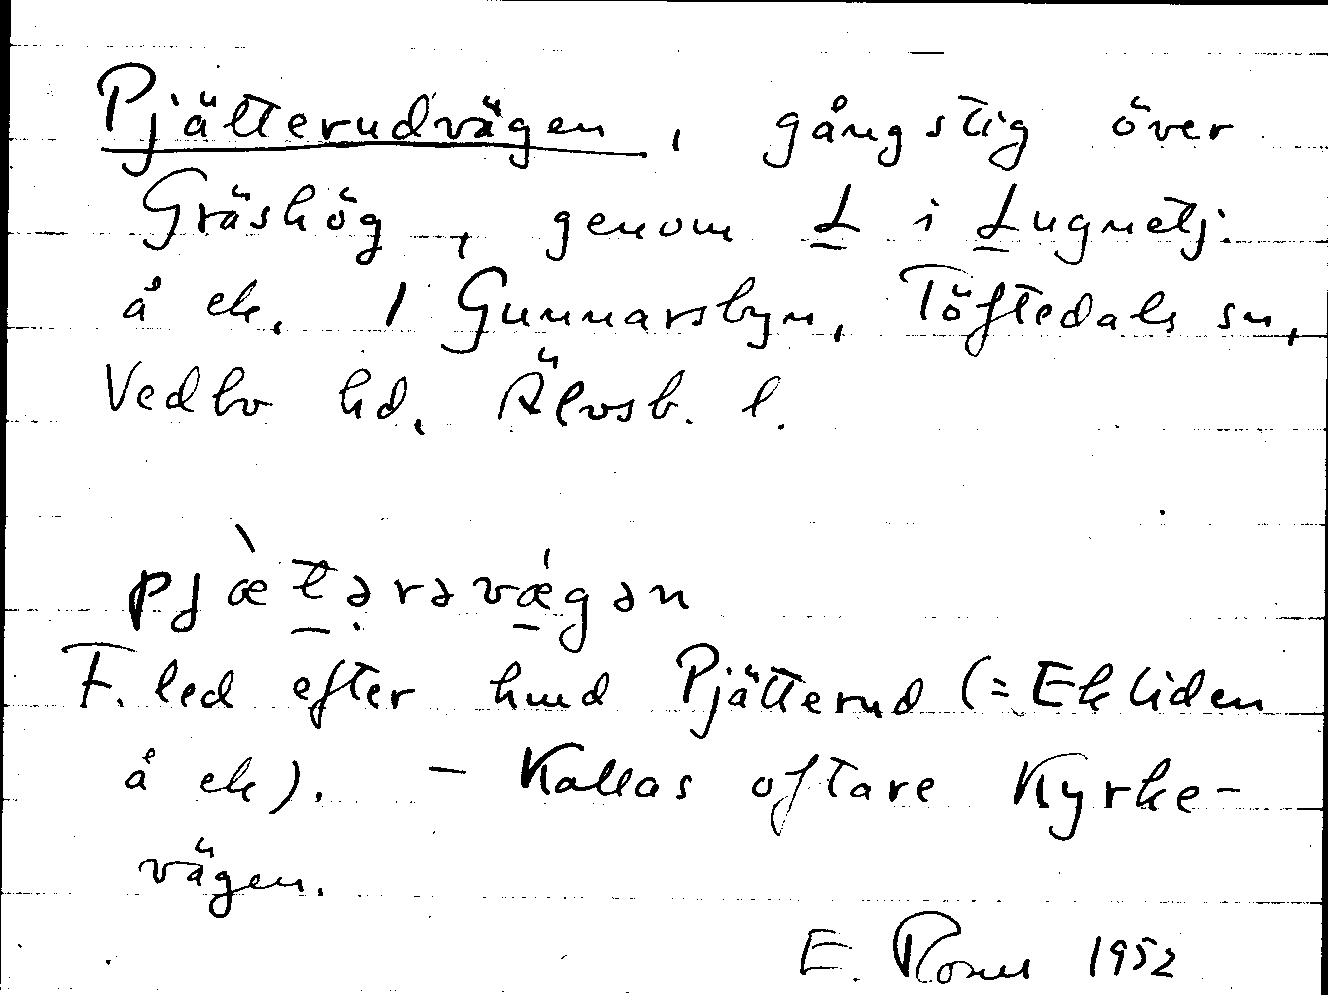 Pjätterudvägen, gångstig över
Gräshög, genom L i Lugnetj.
å ek. / Gunnarsbyn, Töftedals sn,
Vedbo hd, Älvsb. l.
pjæ̀tərəvǽgən
F. led efter hmd Pjätterud (= Ekliden
å ek). – Kallas oftare Kyrke-
vägen.
E. 1952